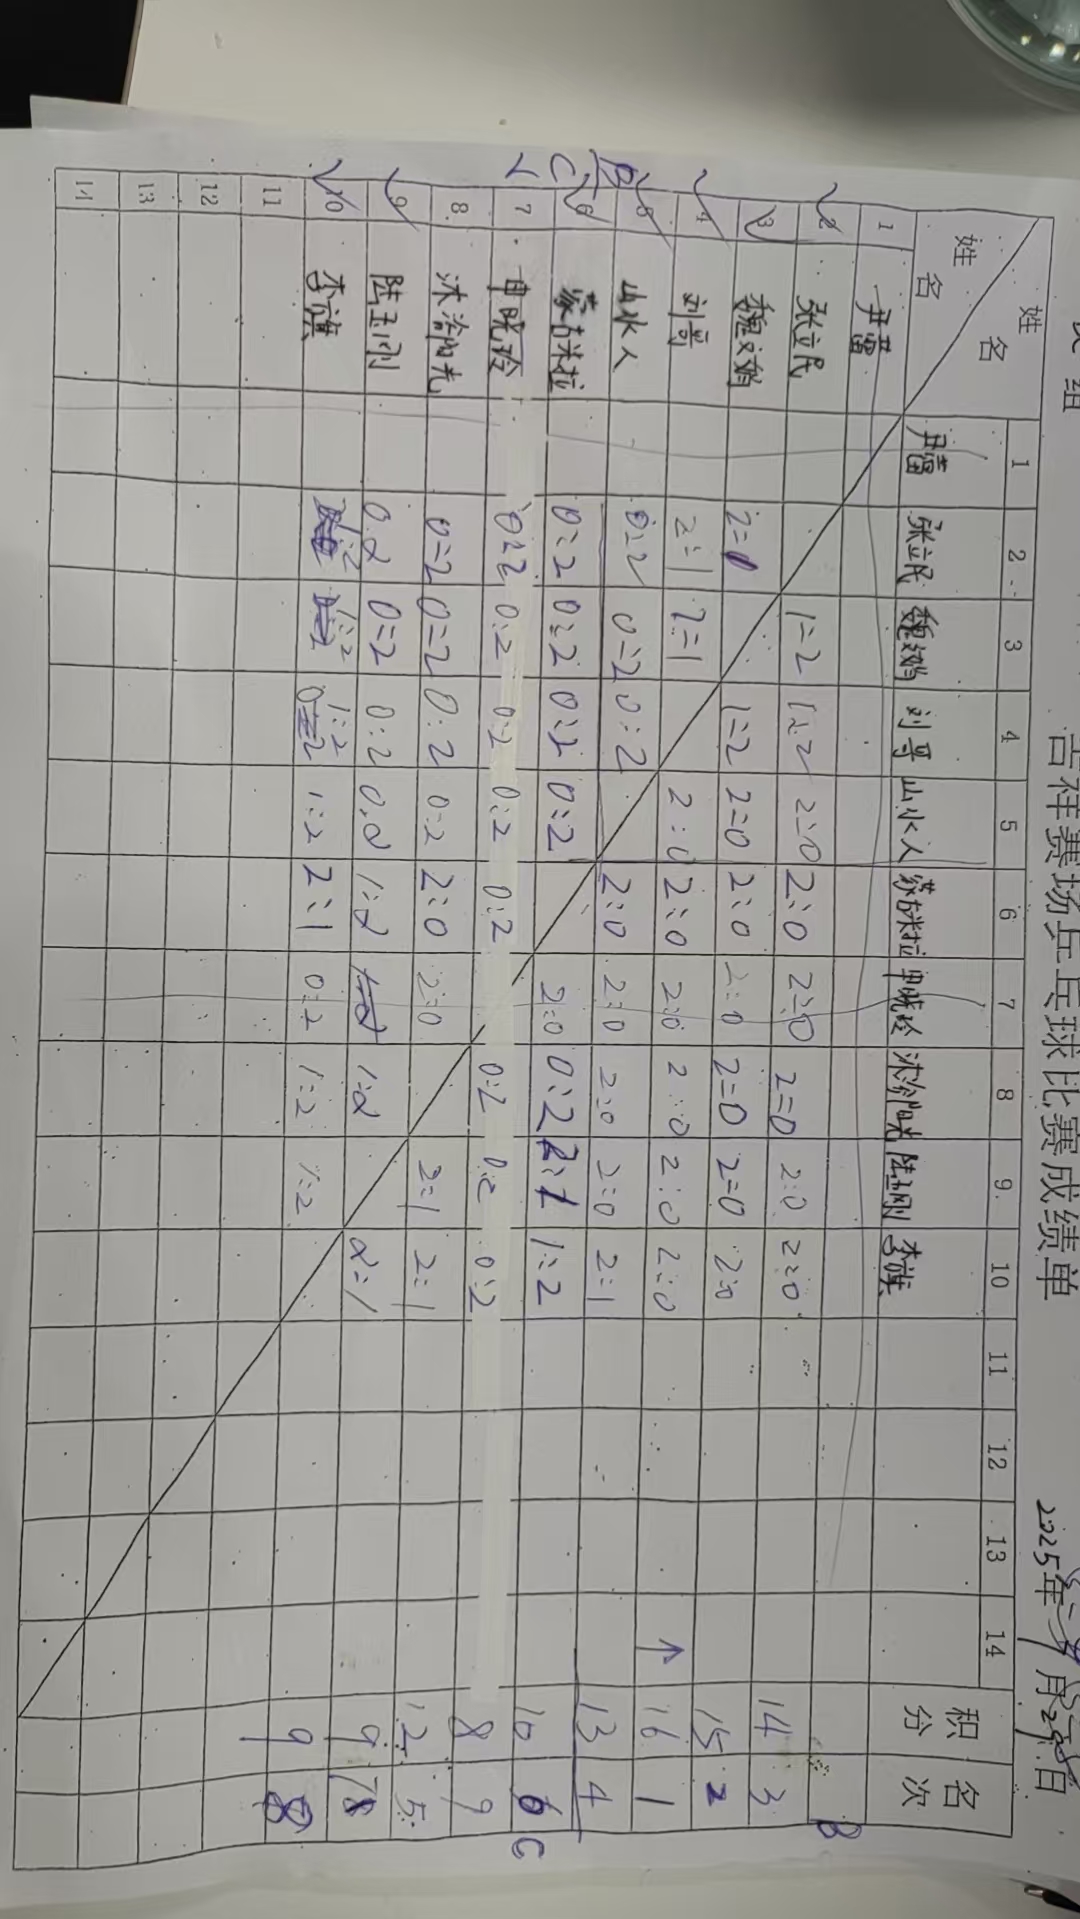 吉祥赛场乒乓球比赛成绩单
组 2025年 月 日
姓名 姓名 1 2 3 4 5 6 7 8 9 10 11 12 13 14 积分 名次
尹蕾 张立民 魏文娟 刘哥 山水人 蒙古米拉 申晓玲 沐浴阳光 陆玉刚 李旗
1 尹蕾 B
2 张立民 1:2 1:2 2:0 2:0 2:0 2:0 2:0 2:0 14 3
3 魏文娟 2:0 1:2 2:0 2:0 2:0 2:0 2:0 2:0 15 2
4 刘哥 2:1 2:1 2:0 2:0 2:0 2:0 2:0 2:0 ↑ 16 1
B 5 山水人 0:2 0:2 0:2 2:0 2:0 2:0 2:0 2:1 13 4
C 6 蒙古米拉 0:2 0:2 0:2 0:2 2:0 0:2 2:1 1:2 10 6 C
7 申晓玲 0:2 0:2 0:2 0:2 0:2 0:2 0:2 0:2 8 9
8 沐浴阳光 0:2 0:2 0:2 0:2 2:0 2:0 2:1 2:1 12 5
9 陆玉刚 0:2 0:2 0:2 0:2 1:2 1:2 2:1 9 7
10 李旗 1:2 1:2 1:2 1:2 2:1 0:2 1:2 1:2 9 8
11
12
13
14